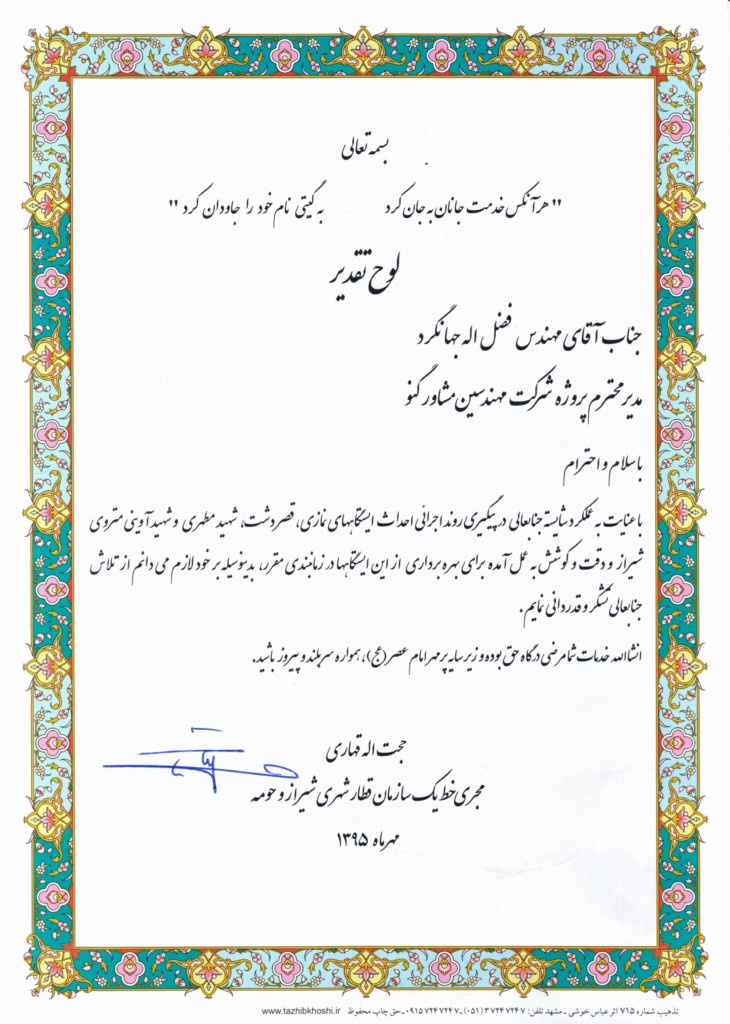 بسمه تعالی
" هر آنکس خدمت جانان به جان کرد به گیتی نام خود را جاودان کرد "
لوح تقدیر
جناب آقای مهندس فضل اله جهانگرد
مدیر محترم پروژه شرکت مهندسین مشاور گنو
با سلام و احترام
با عنایت به عملکرد شایسته جنابعالی در پیگیری روند اجرائی احداث ایستگاههای نمازی، قصردشت، شهید مطهری و شهید آوینی متروی
شیراز و دقت و کوشش به عمل آمده برای بهره برداری از این ایستگاهها در زمانبندی مقرر، بدینوسیله بر خود لازم می دانم از تلاش
جنابعالی تشکر و قدردانی نمایم.
انشاالله خدمات شما مرضی درگاه حق بوده و زیر سایه پر مهر امام عصر (عج)، همواره سربلند و پیروز باشید.
حجت اله قهاری
مجری خط یک سازمان قطار شهری شیراز و حومه
مهر ماه ۱۳۹۵
تذهیب شماره ۷۱۵ اثر عباس خوشی - مشهد تلفن: ۳۷۲۴۷۲۴۷ (۰۵۱) - ۰۹۱۵۷۲۴۷۲۴۷ - حق چاپ محفوظ www.tazhibkhoshi.ir